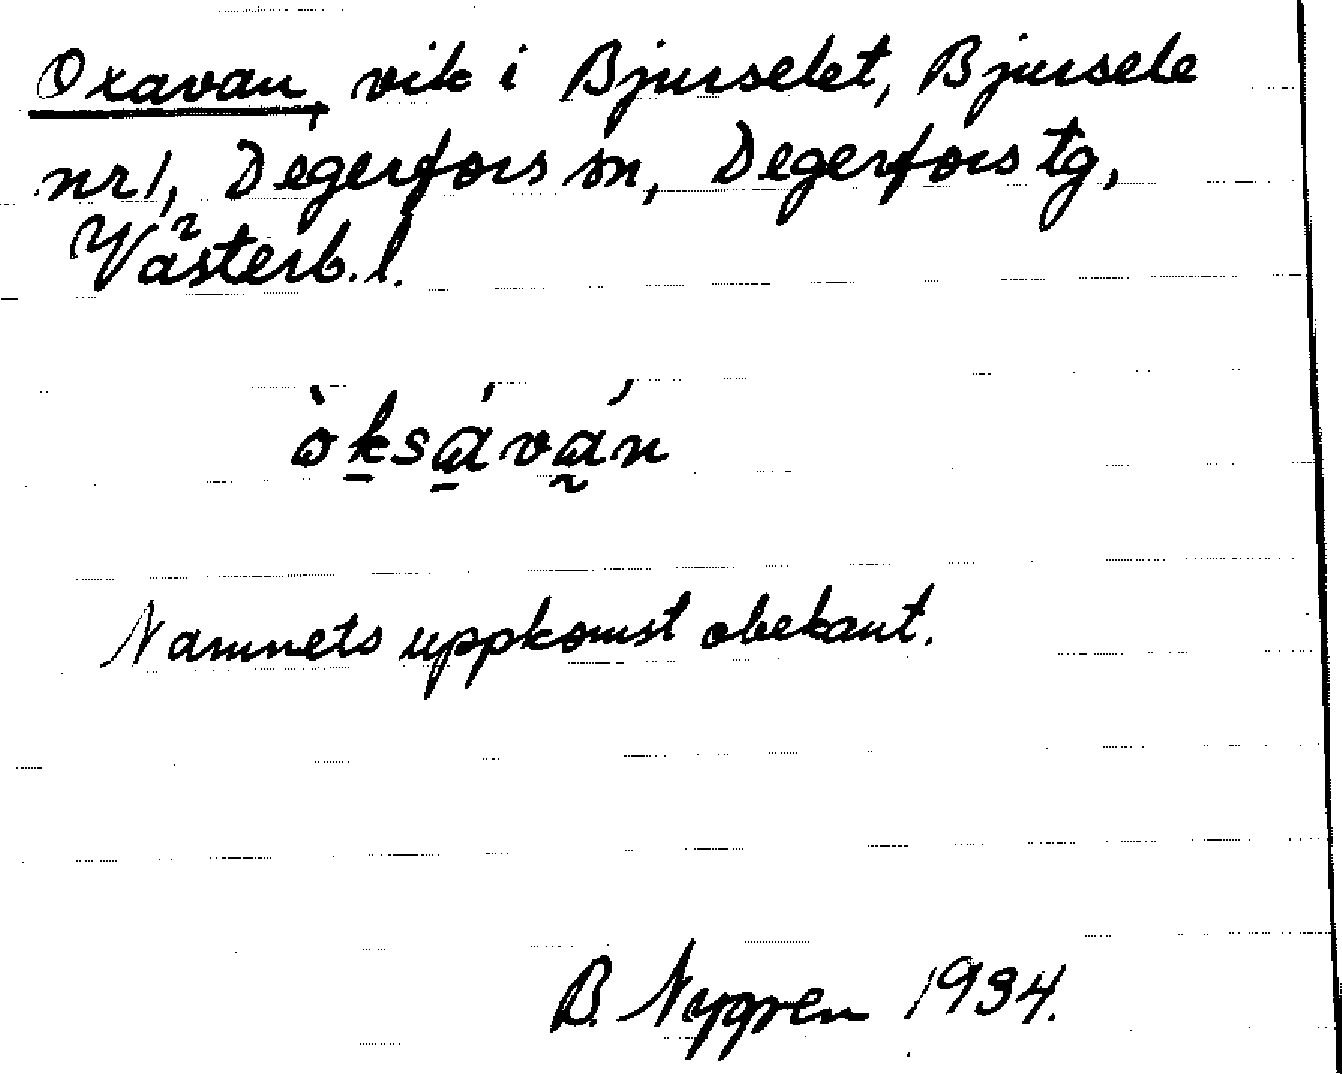 Oxavan, vik i Bjurselet, Bjursele
nr 1, Degerfors sn, Degerfors tg,
Västerb. l.
òk̠sa̠̍va̰̍n
Namnets uppkomst obekant.
B. Nygren 1934.